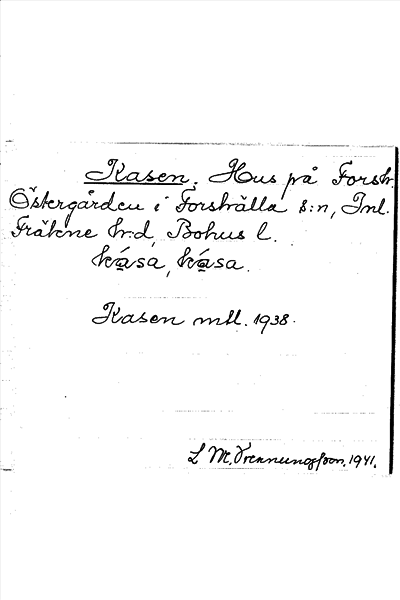 Kasen. Hus på Forsh.
Östergården i Forshälla s:n, Inl.
Fräkne h:d, Bohus l.
kása, kása.
Kasen mtl. 1938.
L M. 1941.